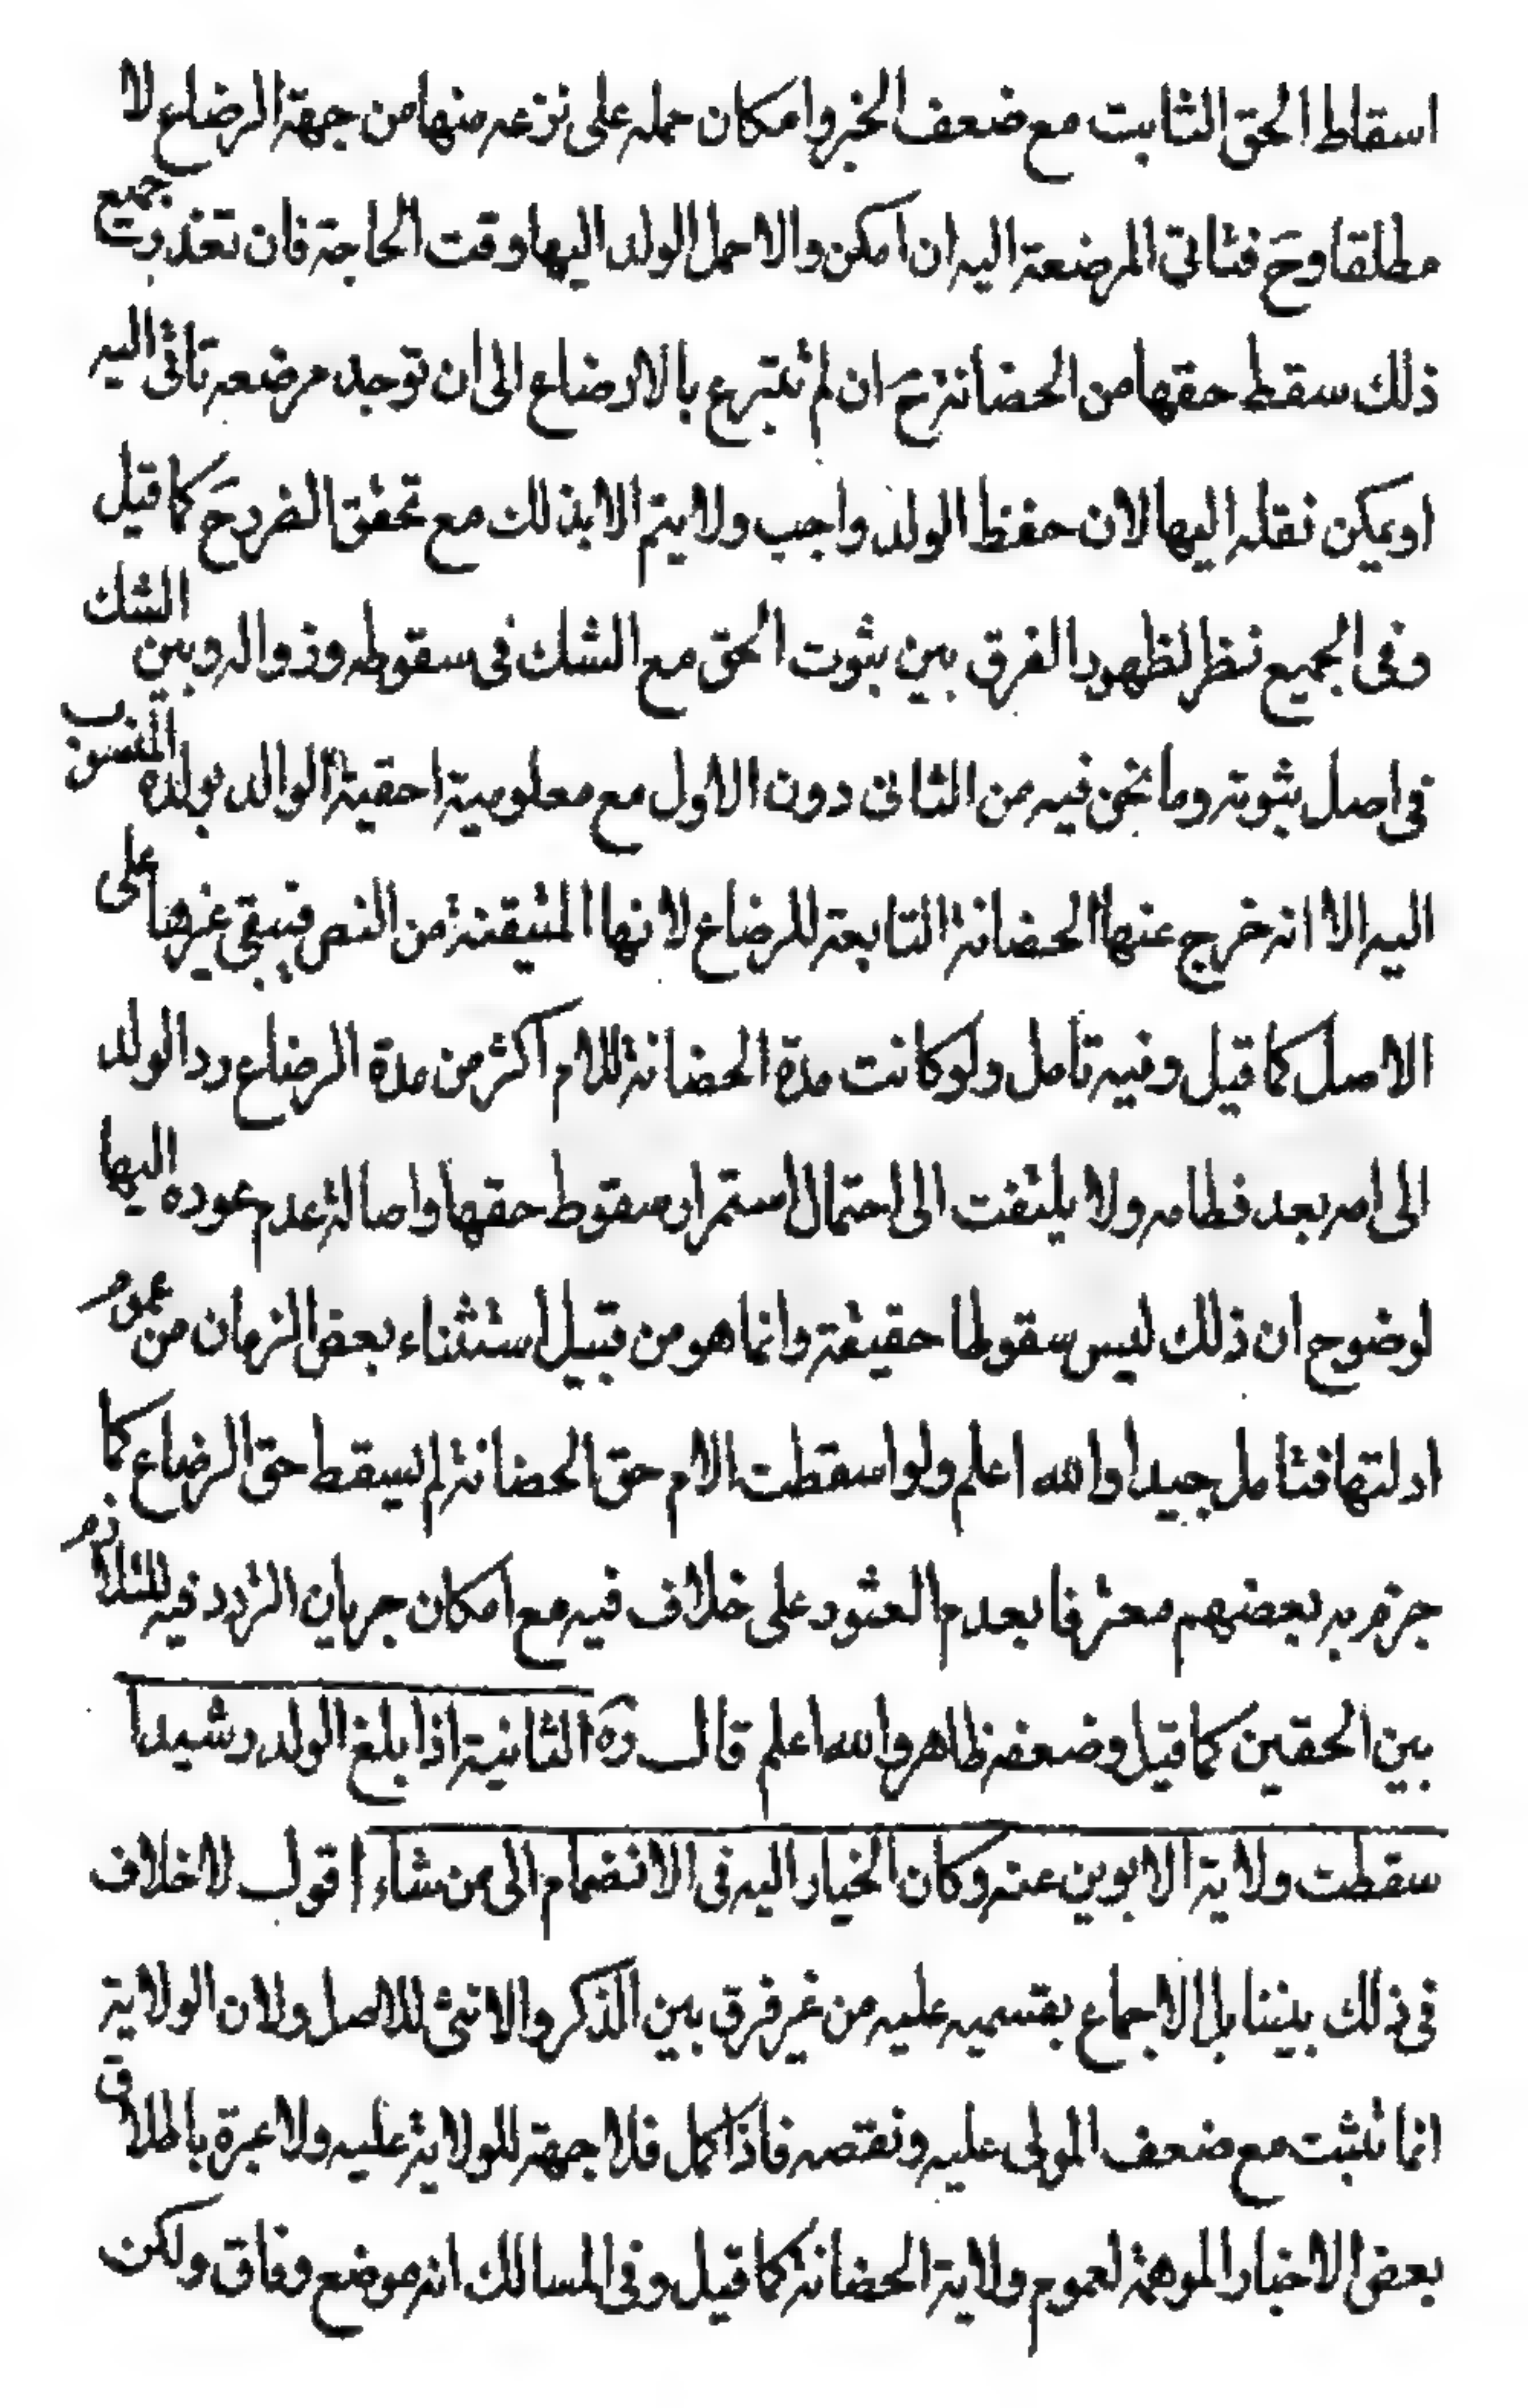 اسقاط الحق الثابت مع ضعف الخبر وامكان حمله على نزعه منها من جهة الرضاع لا
مطلقا وحَ فتاتى المرضعة اليه ان امكن والا حمل الولد اليها وقت الحاجة فان تعذرت جميع
ذلك سقط حقها من الحضانة حَ ان لم تتبرع بالارضاع الى ان توجد مرضعه تاتى اليه
او يمكن نقله اليها لان حفظ الولد واجب ولا يتم الا بذلك مع تحقق الضرر حَ كما قيل
وفى الجميع نظر لظهور الفرق بين ثبوت الحق مع الشك فى سقوطه وزواله وبين الشك
فى اصل ثبوته وما نحن فيه من الثانى دون الاول مع معلومية احقية الوالد بولده المنسوب
اليه الا انه خرج عنها الحضانة التابعة للرضاع لانها المتيقنة من النص فيبقى غيرها على
الاصل كما قيل وفيه تامل ولو كانت مدة الحضانة للام اكثر من مدة الرضاع رد الولد
الى امه بعد فطامه ولا يلتفت الى احتمال استمرار سقوط حقها واصالة عدم عوده اليها
لوضوح ان ذلك ليس سقوطا حقيقة وانما هو من قبيل استثناء بعض الزمان من عموم
ادلتها فتامل جيدا والله اعلم ولو اسقطت الام حق الحضانة لم يسقط حق الرضاع كما
جزم به بعضهم معترفا بعدم العثور على خلاف فيه مع امكان جريان التردد فيه للتلازم
بين الحقين كما قيل وضعفه ظاهر والله اعلم قال رَه الثانية اذا بلغ الولد رشيدا
سقطت ولاية الابوين عنه وكان الخيار اليه فى الانضمام الى من شاء اقول لا خلاف
فى ذلك بيننا بل الاجماع بقسميه عليه من غير فرق بين الذكر والانثى للاصل ولان الولاية
انما تثبت مع ضعف المولى عليه ونقصه فاذا كمل فلا جهة للولاية عليه ولا عبرة باطلاق
بعض الاخبار الموهمة لعموم ولاية الحضانة كما قيل وفى المسالك انه موضع وفاق ولكن